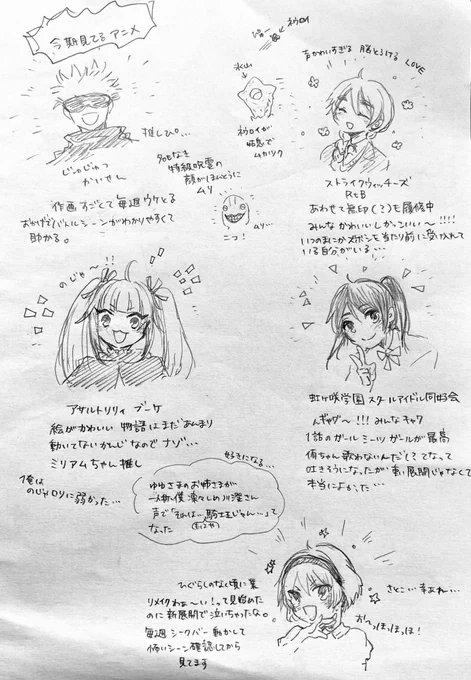 今期見てるアニメ
推しぴ。…
じゅじゅつ
かいせん
作画すごくて毎週ウケとる
バトルシーンがわかりやすくて
助かる。
特級呪霊の
顔がほんとうに
ムリ
ニコ!
ムリ…
氷山
ネウロイ
ネウロイが
ムカツク
声かわいすぎる 脳とろける LOVE
ストライクウィッチーズ
RtB
あわせて無印(?)も履修中
みんなかわいいしかっこいい〜!!!!
いつのまにかズボンを当たり前に受け入れて
いる自分がいる…
のじゃ〜!!
アサルトリリィ ブーケ
絵がかわいい 物語はまだあんまり
動いてないかんじなのでナゾ…
ミリアムちゃん推し
俺は
のじゃロリに弱かった…
虹ヶ咲学園スクールアイドル同好会
んギャグ〜!!! みんなキャワ
1話のガールミーツガールが最高
侑ちゃん歌わないんだし?てなって
吐きそうになったが 展開じゃなくて
本当によかった…
好きになる…
ゆゆさまのお姉さまが
一人称僕 凛々しめ川澄さん
声で「それは…騎士王じゃん…」って
なった
ひぐらしのなく頃に業
リメイクわぁ〜い!って見始めた
のに新展開で泣いちゃったな。
毎週シークバー動かして
怖いシーン確認してから
見てます
さとこ…幸あれ…
おーっほっほっほ!